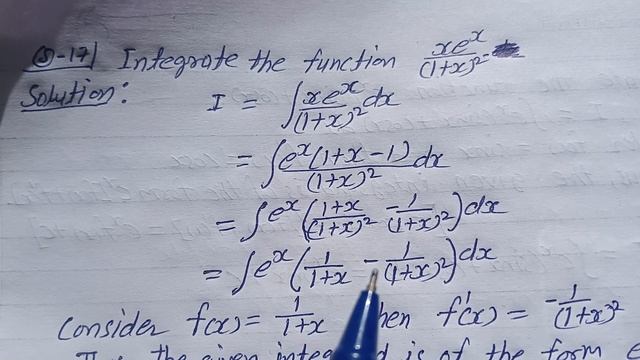 Q-17 Integrate the function xe^x/(1+x)²
Solution:
I = ∫ xe^x/(1+x)² dx
= ∫ e^x(1+x-1)/(1+x)² dx
= ∫ e^x ((1+x)/(1+x)² - 1/(1+x)²) dx
= ∫ e^x (1/(1+x) - 1/(1+x)²) dx
Consider f(x) = 1/(1+x) then f'(x) = -1/(1+x)²
the given integ is of the form e